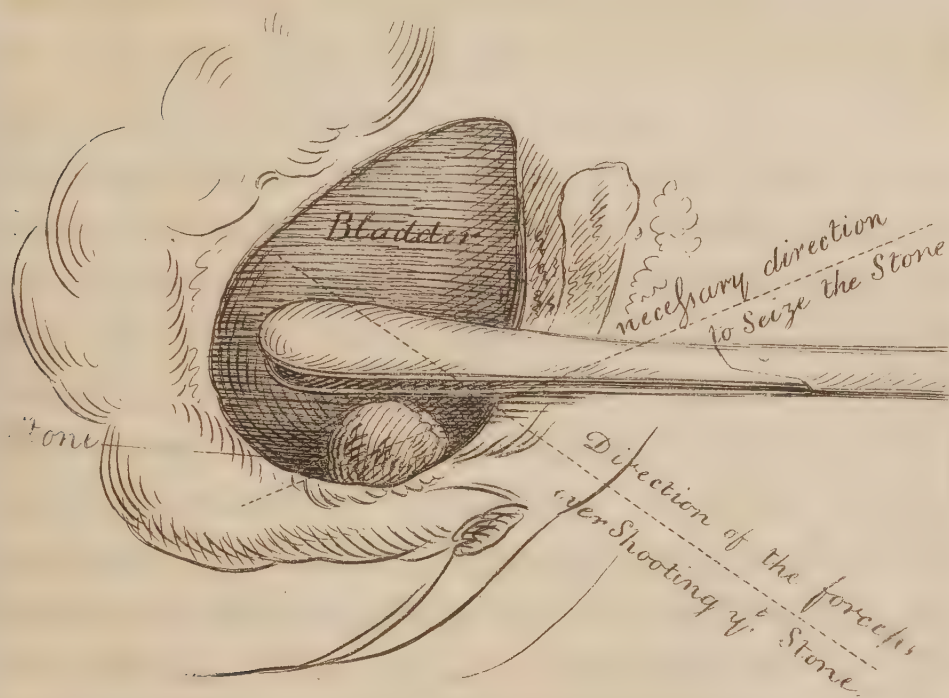 Bladder
necessary direction
to Seize the Stone
tone
Direction of the forceps
over Shooting yt Stone